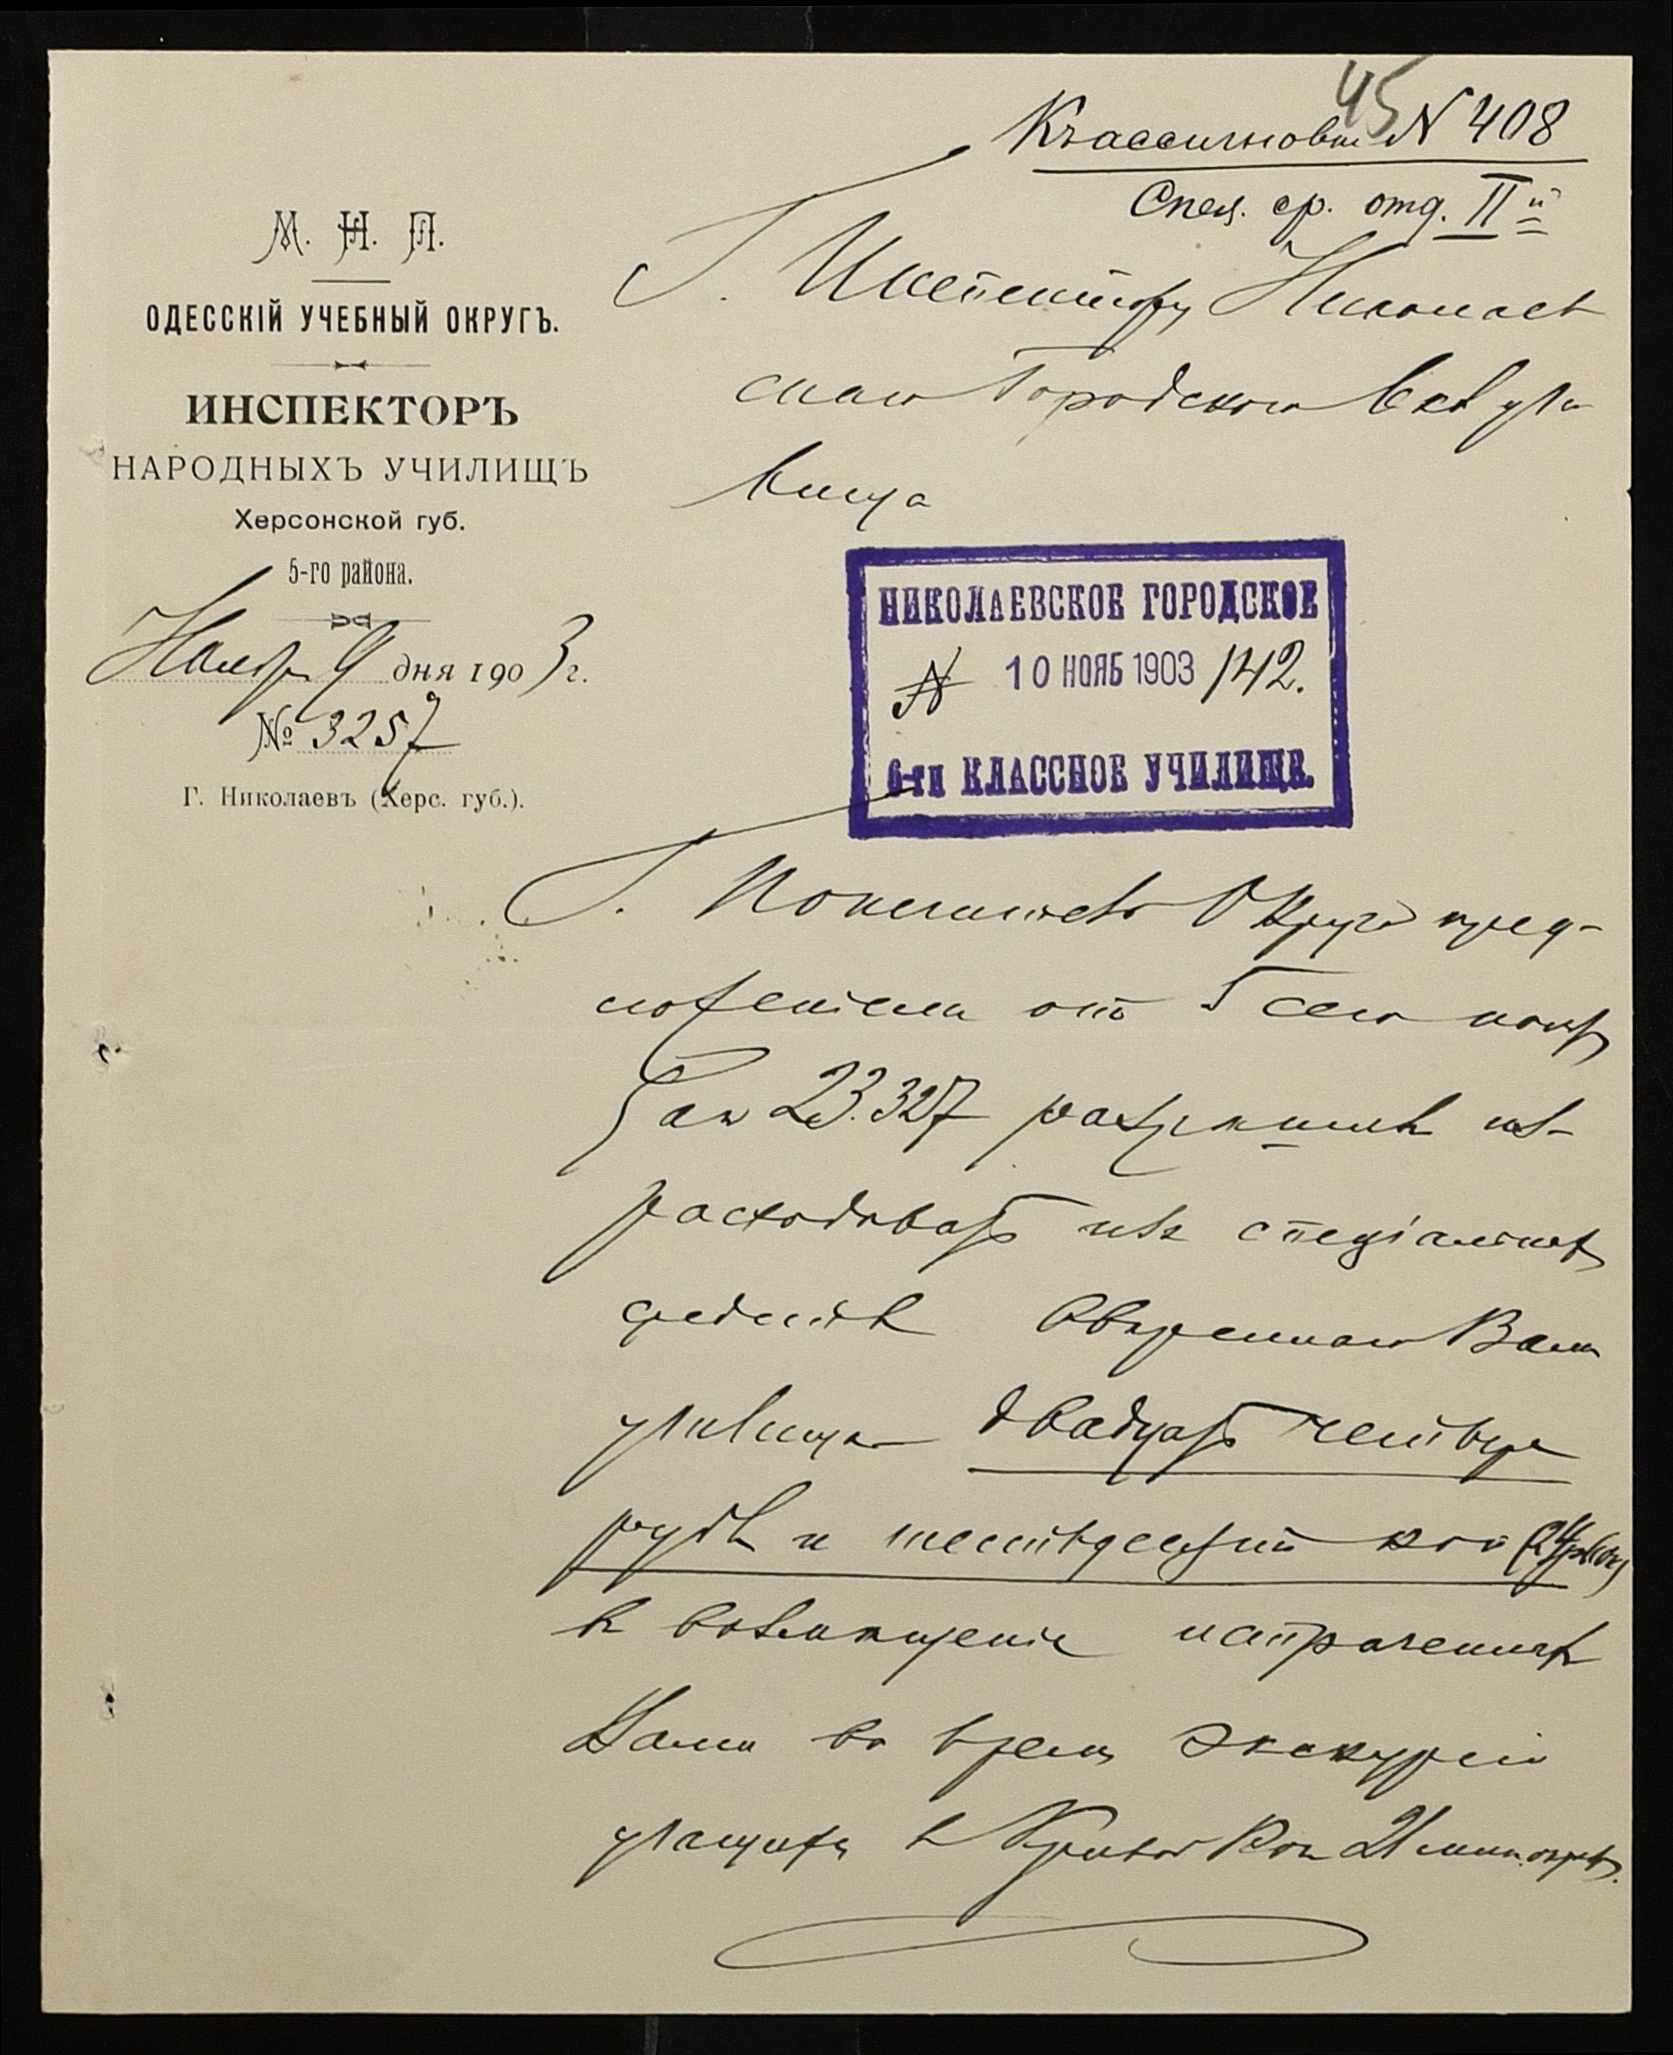 45
№ 408
Спец. ср. отд. II й
М. Н. П.
ОДЕССКІЙ УЧЕБНЫЙ ОКРУГЪ.
ИНСПЕКТОРЪ
НАРОДНЫХЪ УЧИЛИЩЪ
Херсонской губ.
5-го района.
Ноября 9 дня 1903 г.
№ 3257
Г. Николаевъ (Херс. губ.).
Г. Инспектору Николаев
скаго Городского 6 кл учи
лища
НИКОЛАЕВСКОЕ ГОРОДСКОЕ
№ 10 НОЯБ 1903 1142.
6-ти КЛАССНОЕ УЧИЛИЩЕ.
Г. Попечитель Округа пред-
ложеніемъ отъ 5 сего нояб
за № 23.327 разрѣшилъ из-
расходовать изъ спеціальных
средствъ ввѣреннаго Вам
училища двадцать четыре
рубл и шестьдесят коп (24 р 60 к)
въ возмѣщеніе истраченных
Вами во время экскурсіи
учащихся в Кривой Рог 21 мин. окт.